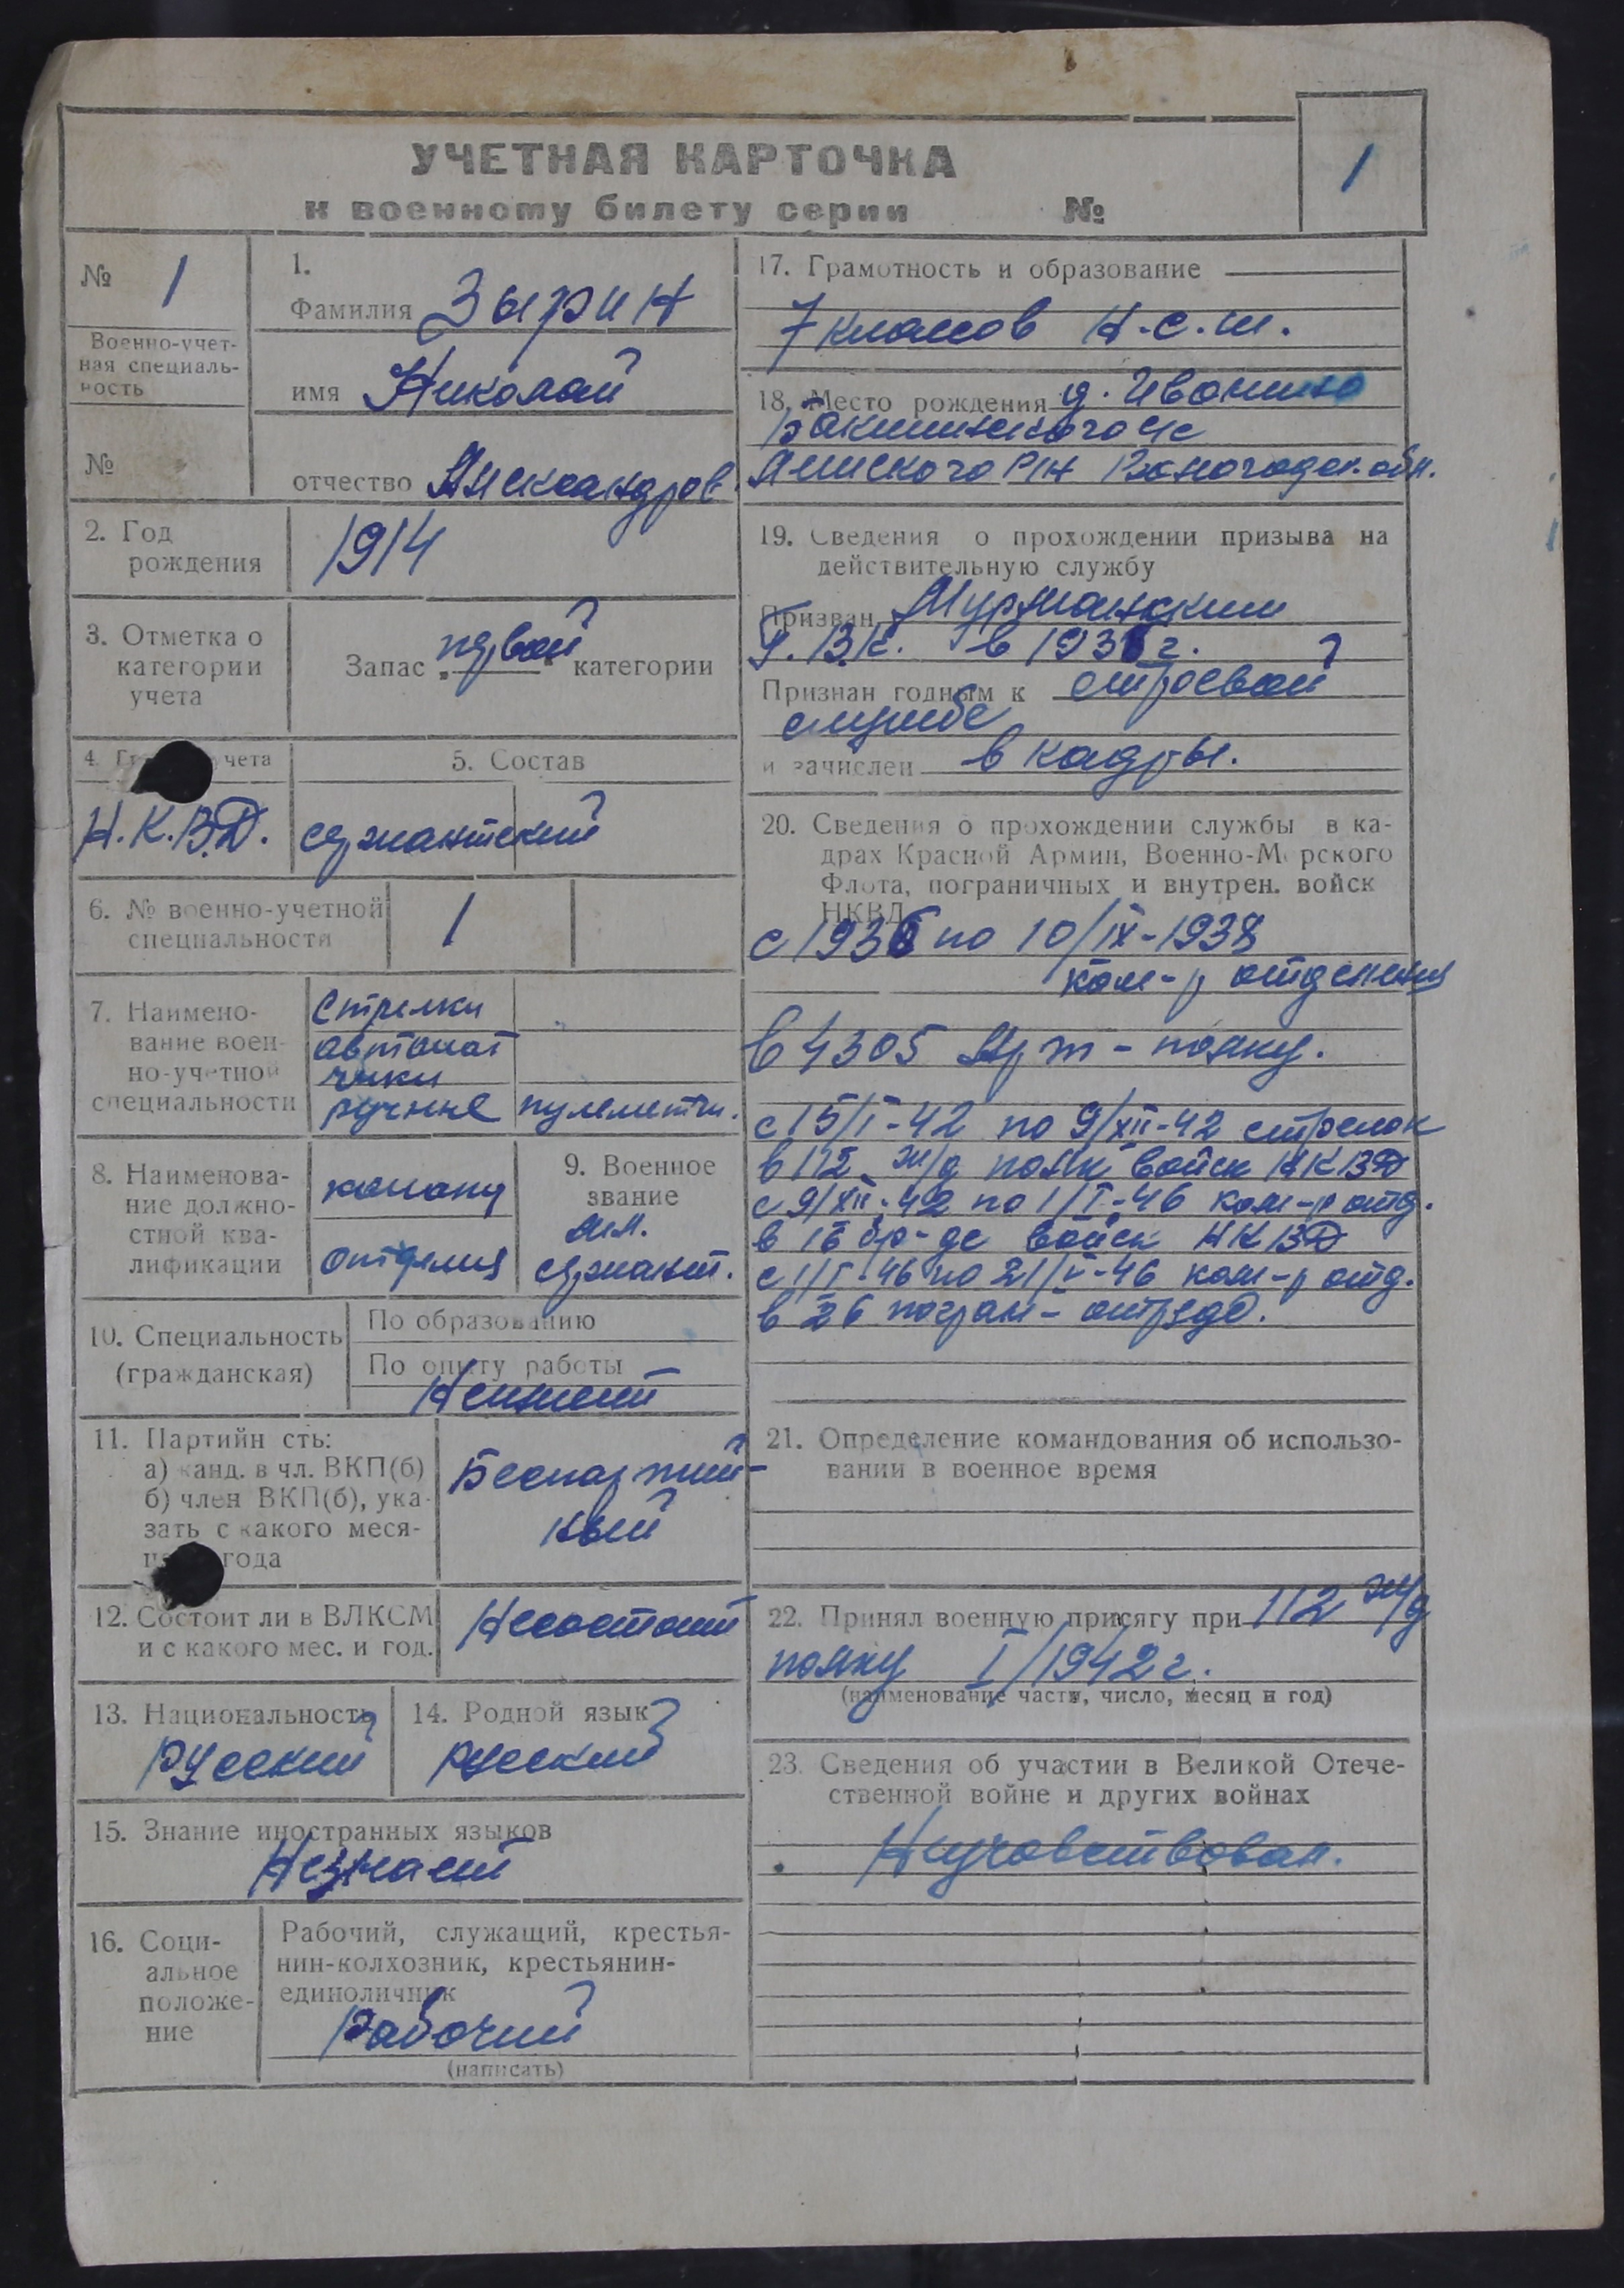 УЧЕТНАЯ КАРТОЧКА
к военному билету серии №
1
№ 1
Военно-учет-
ная специаль-
ность
№
1.
Фамилия Зырин
имя Николай
отчество Александров.
2. Год
рождения
1914
3. Отметка о
категории
учета
Запас первой категории
4. учета
Н.К.В.Д.
5. Состав
сержантский
6. № военно-учетной
специальности
1
7. Наимено-
вание воен-
но-учетной
специальности
Стрелки
автомат
чики
ручные пулеметчи.
8. Наименова-
ние должно-
стной ква-
лификации
команд
отделия
9. Военное
звание
мл.
сержант.
10. Специальность
(гражданская)
По образованию
По опыту работы
Неимеет
11. Партийн сть:
а) канд. в чл. ВКП(б)
б) член ВКП(б), ука-
зать с какого меся-
года
Беспартий-
ный
12. Состоит ли в ВЛКСМ
и с какого мес. и год.
Несостоит
13. Национальность
русский
14. Родной язык
русский
15. Знание иностранных языков
Незнает
16. Соци-
альное
положе-
ние
Рабочий, служащий, крестья-
нин-колхозник, крестьянин-
единоличник
Рабочий
(написать)
17. Грамотность и образование
7 классов Н.с.ш.
18. Место рождения д. Иванино
с/с
Р/Н Вологодск. обл.
19. Сведения о прохождении призыва на
действительную службу
Призван Мурманским
Г.В.К. в 1936 г.
Признан годным к строевой
службе
и зачислен в кадры.
20. Сведения о прохождении службы в ка-
драх Красной Армии, Военно-Морского
Флота, пограничных и внутрен. войск
НКВД
с 1936 по 10/IX-1938
ком-р отделения
в 4305 Арт-полку.
с 15/I-42 по 9/XII-42 стрелок
в 112 ж/д полк войск НКВД
с 9/XII-42 по 1/I-46 ком-р отд.
в 16 бр-де войск НКВД
с 1/I-46 по 21/V-46 ком-р отд.
в 26 погран-отряде.
21. Определение командования об использо-
вании в военное время
22. Принял военную присягу при 112 ж/д
полку I/1942 г.
(наименование части, число, месяц и год)
23. Сведения об участии в Великой Отече-
ственной войне и других войнах
Неучавствовал.